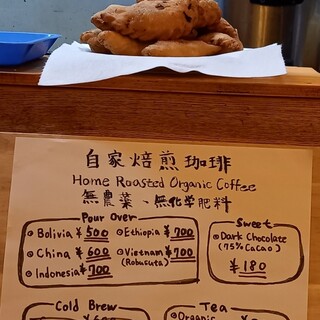 自家焙煎珈琲
Home Roasted Organic Coffee
無農薬、無化学肥料
Pour Over
• Bolivia ¥500 • Ethiopia ¥700
• China ¥600 • Vietnam ¥700
(Robusuta)
• Indonesia ¥700
Sweet
• Dark Chocolate
(75% Cacao)
¥180
Cold Brew
Tea
• Organic